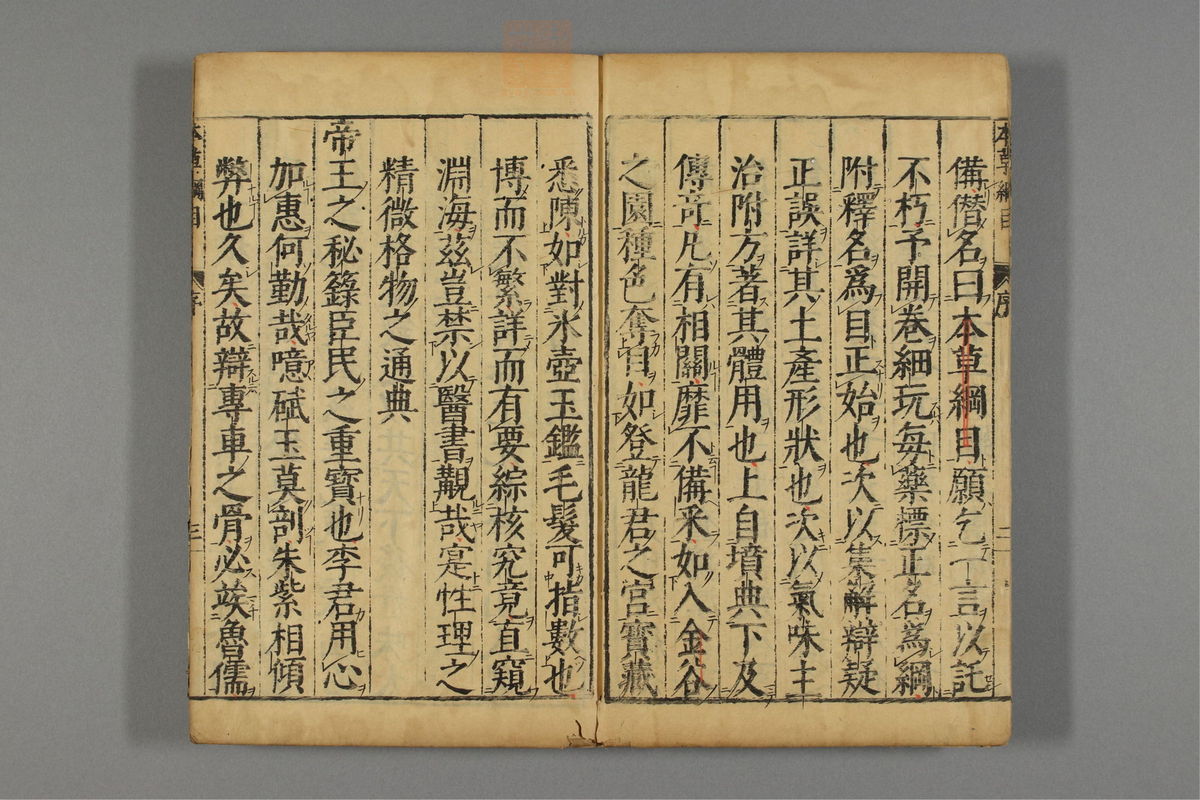 本草綱目 序 二
備僭名曰本草綱目願乞一言以託
不朽予開卷細玩每藥標正名爲綱
附釋名爲目正始也次以集解辯疑
正誤詳其土產形狀也次以氣味主
治附方著其體用也上自墳典下及
傳奇凡有相關靡不備采如入金谷
之園種色奪目如登龍君之宮寶藏
悉陳如對冰壺玉鑑毛髮可指數也
博而不繁詳而有要綜核究竟直窺
淵海茲豈禁以醫書觀哉寔性理之
精微格物之通典
帝王之秘籙臣民之重寶也李君用心
加惠何勤哉噫碔玉莫剖朱紫相傾
弊也久矣故辯專車之骨必竢魯儒
本草綱目 序 三